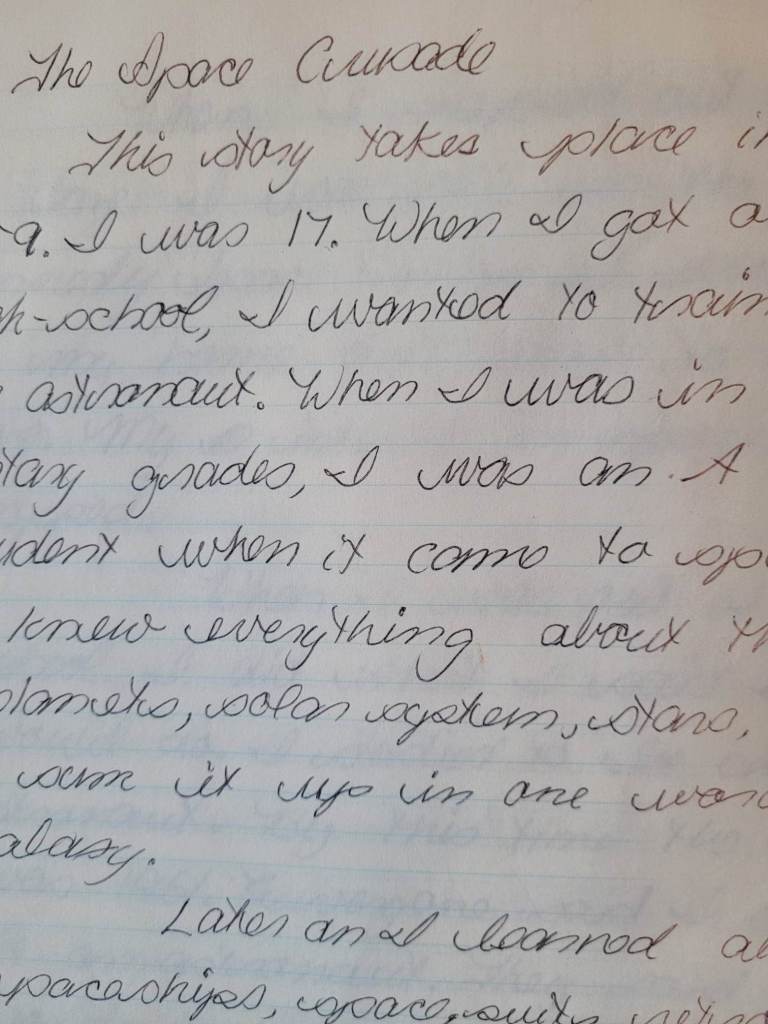 The Space Crusade
This story takes place in
9. I was 17. When I got a
-school, I wanted to train
astronaut. When I was in
tary grades, I was an A
udent when it came to spa
knew everything about th
planets, solar system, stars,
sum it up in one word
alaxy.
Later on I learned a
spaceships, space, suits